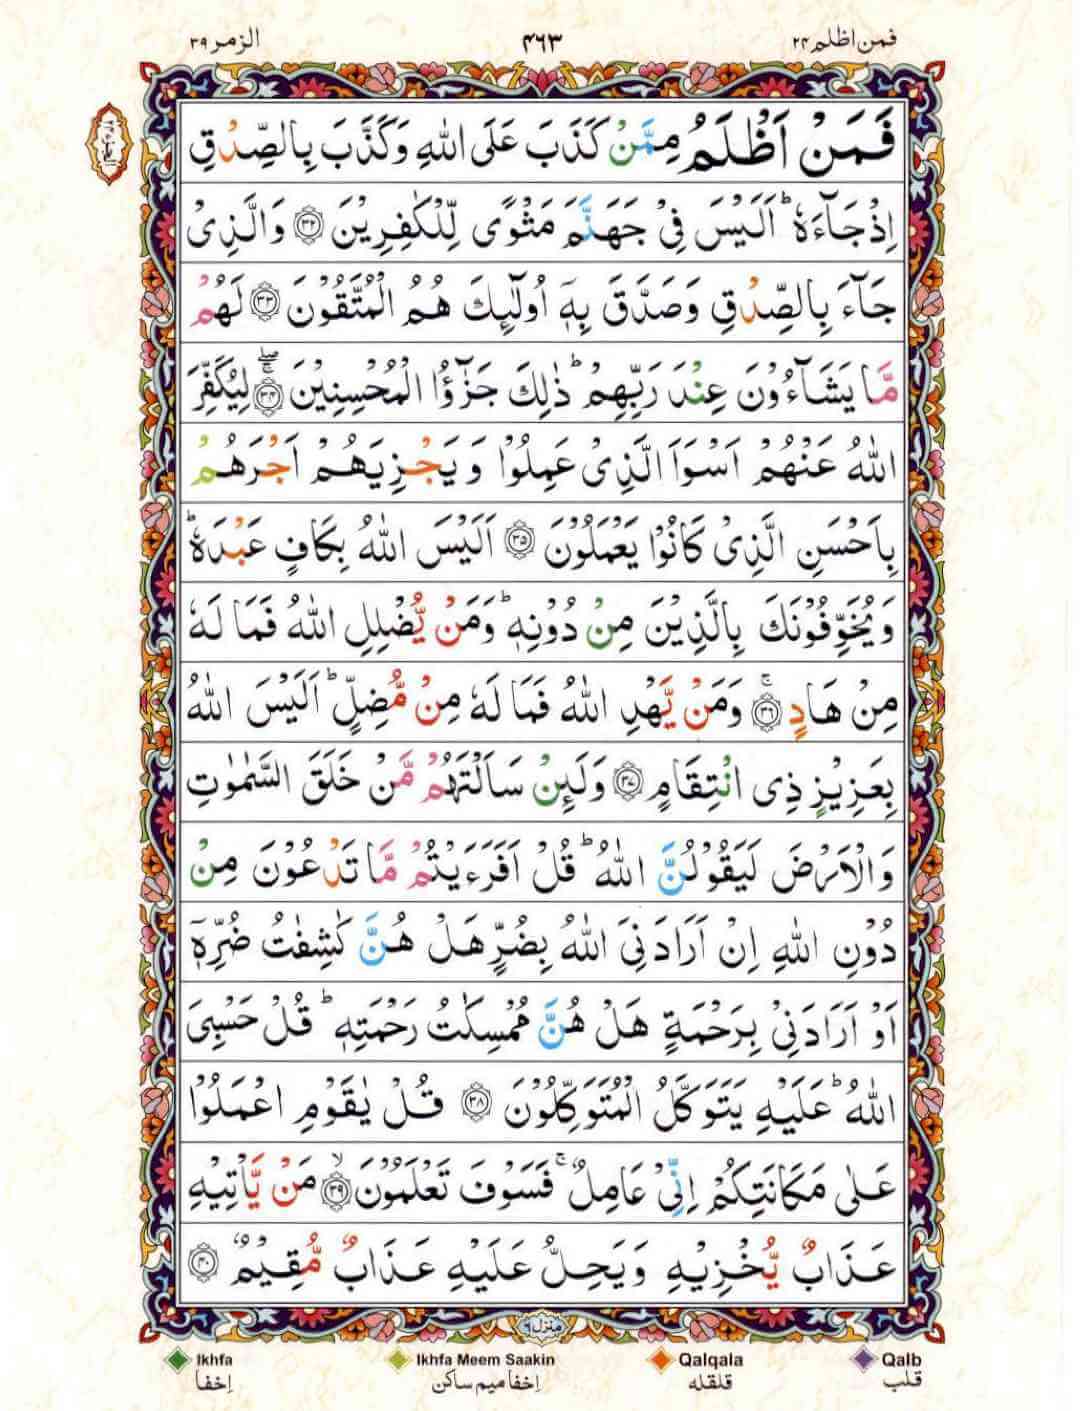 الزمر ۳۹
۴۶۳
فمن اظلم ۲۴
فَمَنْ اَظْلَمُ مِمَّنْ كَذَبَ عَلَى اللّٰهِ وَكَذَّبَ بِالصِّدْقِ
اِذْ جَآءَهٗ ؕ اَلَيْسَ فِيْ جَهَنَّمَ مَثْوًى لِّلْكٰفِرِيْنَ ۝۳۲ وَالَّذِيْ
جَآءَ بِالصِّدْقِ وَصَدَّقَ بِهٖۤ اُولٰٓئِكَ هُمُ الْمُتَّقُوْنَ ۝۳۳ لَهُمْ
مَّا يَشَآءُوْنَ عِنْدَ رَبِّهِمْ ؕ ذٰلِكَ جَزٰٓؤُا الْمُحْسِنِيْنَ ۝۳۴ۚۖ لِيُكَفِّرَ
اللّٰهُ عَنْهُمْ اَسْوَاَ الَّذِيْ عَمِلُوْا وَيَجْزِيَهُمْ اَجْرَهُمْ
بِاَحْسَنِ الَّذِيْ كَانُوْا يَعْمَلُوْنَ ۝۳۵ اَلَيْسَ اللّٰهُ بِكَافٍ عَبْدَهٗ ؕ
وَيُخَوِّفُوْنَكَ بِالَّذِيْنَ مِنْ دُوْنِهٖ ؕ وَمَنْ يُّضْلِلِ اللّٰهُ فَمَا لَهٗ
مِنْ هَادٍ ۝۳۶ۚ وَمَنْ يَّهْدِ اللّٰهُ فَمَا لَهٗ مِنْ مُّضِلٍّ ؕ اَلَيْسَ اللّٰهُ
بِعَزِيْزٍ ذِي انْتِقَامٍ ۝۳۷ وَلَئِنْ سَاَلْتَهُمْ مَّنْ خَلَقَ السَّمٰوٰتِ
وَالْاَرْضَ لَيَقُوْلُنَّ اللّٰهُ ؕ قُلْ اَفَرَءَيْتُمْ مَّا تَدْعُوْنَ مِنْ
دُوْنِ اللّٰهِ اِنْ اَرَادَنِيَ اللّٰهُ بِضُرٍّ هَلْ هُنَّ كٰشِفٰتُ ضُرِّهٖۤ
اَوْ اَرَادَنِيْ بِرَحْمَةٍ هَلْ هُنَّ مُمْسِكٰتُ رَحْمَتِهٖ ؕ قُلْ حَسْبِيَ
اللّٰهُ ؕ عَلَيْهِ يَتَوَكَّلُ الْمُتَوَكِّلُوْنَ ۝۳۸ قُلْ يٰقَوْمِ اعْمَلُوْا
عَلٰى مَكَانَتِكُمْ اِنِّيْ عَامِلٌ ۚ فَسَوْفَ تَعْلَمُوْنَ ۝۳۹ۙ مَنْ يَّاْتِيْهِ
عَذَابٌ يُّخْزِيْهِ وَيَحِلُّ عَلَيْهِ عَذَابٌ مُّقِيْمٌ ۝۴۰
منزل ۶
Ikhfa
Ikhfa Meem Saakin
Qalqala
Qalb
اِخفا
اِخفا میم ساکن
قلقلہ
قلب